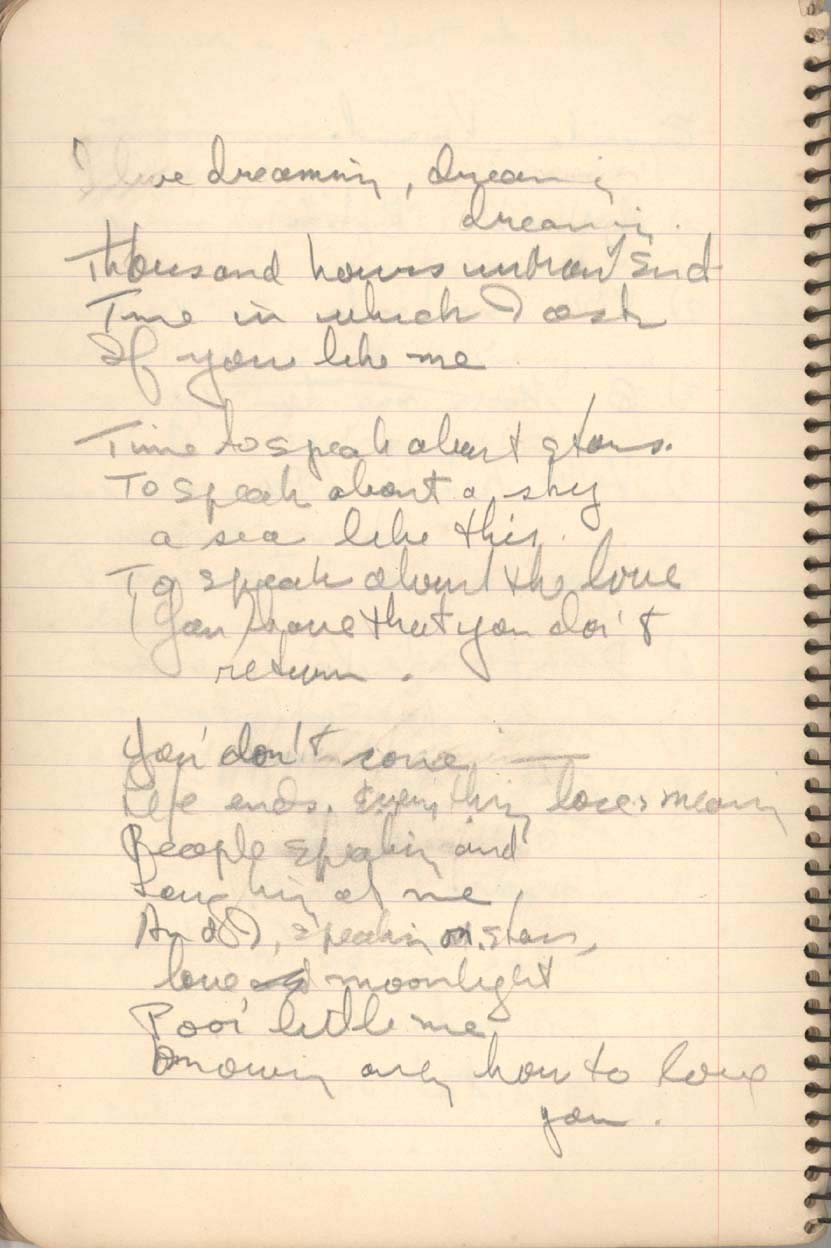 I live dreaming, dreaming
dreaming.
Thousand hours without End
Time in which I ask
If you like me
Time to speak about stars.
To speak about a sky
a sea like this.
To speak about the love
(you) have that you don't
return.
You don't come.—
Life ends. Everything loses meaning
People speaking and
Laughing at me,
And I, speaking on stars,
love and moonlight
Poor little me
Knowing only how to love
you.